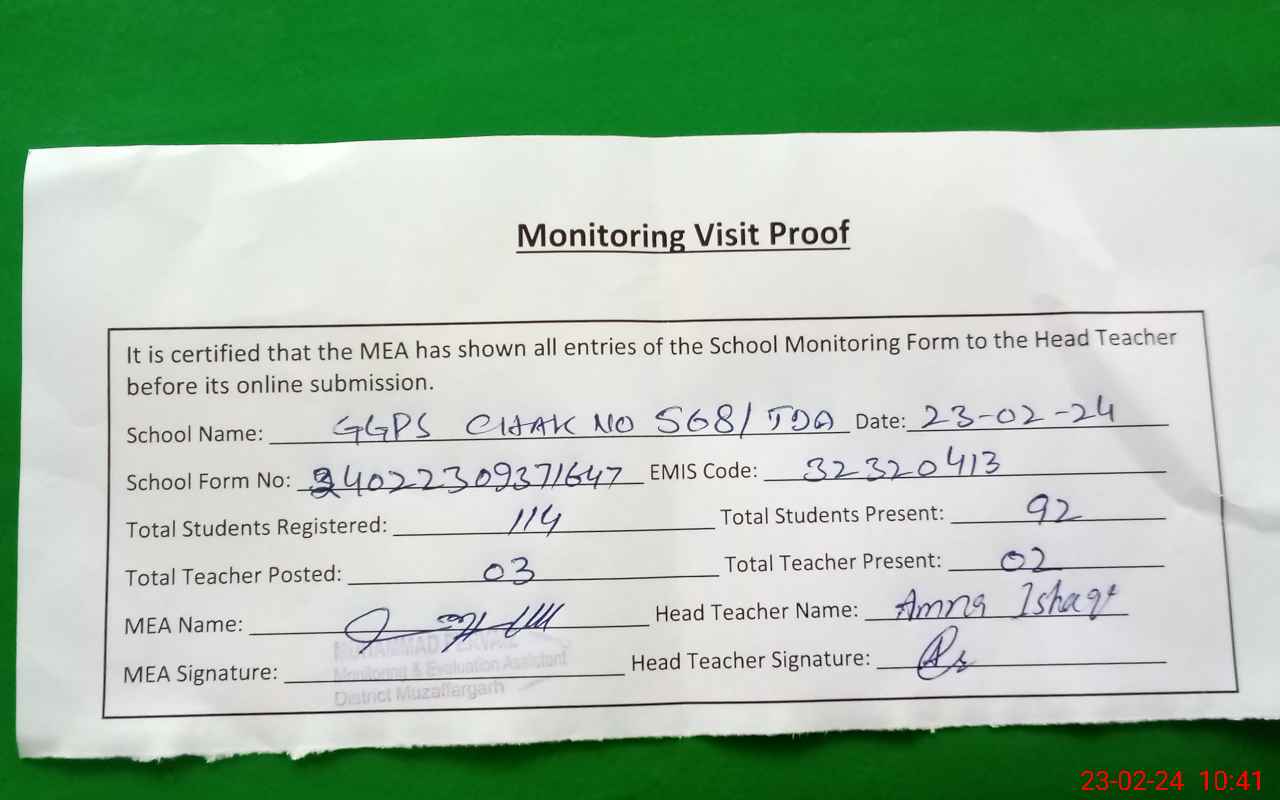 Monitoring Visit Proof
It is certified that the MEA has shown all entries of the School Monitoring Form to the Head Teacher
before its online submission.
School Name: GGPS CHAK NO 568/TDA Date: 23-02-24
School Form No: 34022309371647 EMIS Code: 32320413
Total Students Registered: 114 Total Students Present: 92
Total Teacher Posted: 03 Total Teacher Present: 02
MEA Name: Head Teacher Name: Amna Ishaqe
MUHAMMAD
MEA Signature: Head Teacher Signature:
Monitoring & Evaluation Assistant
District Muzaffargarh
23-02-24 10:41